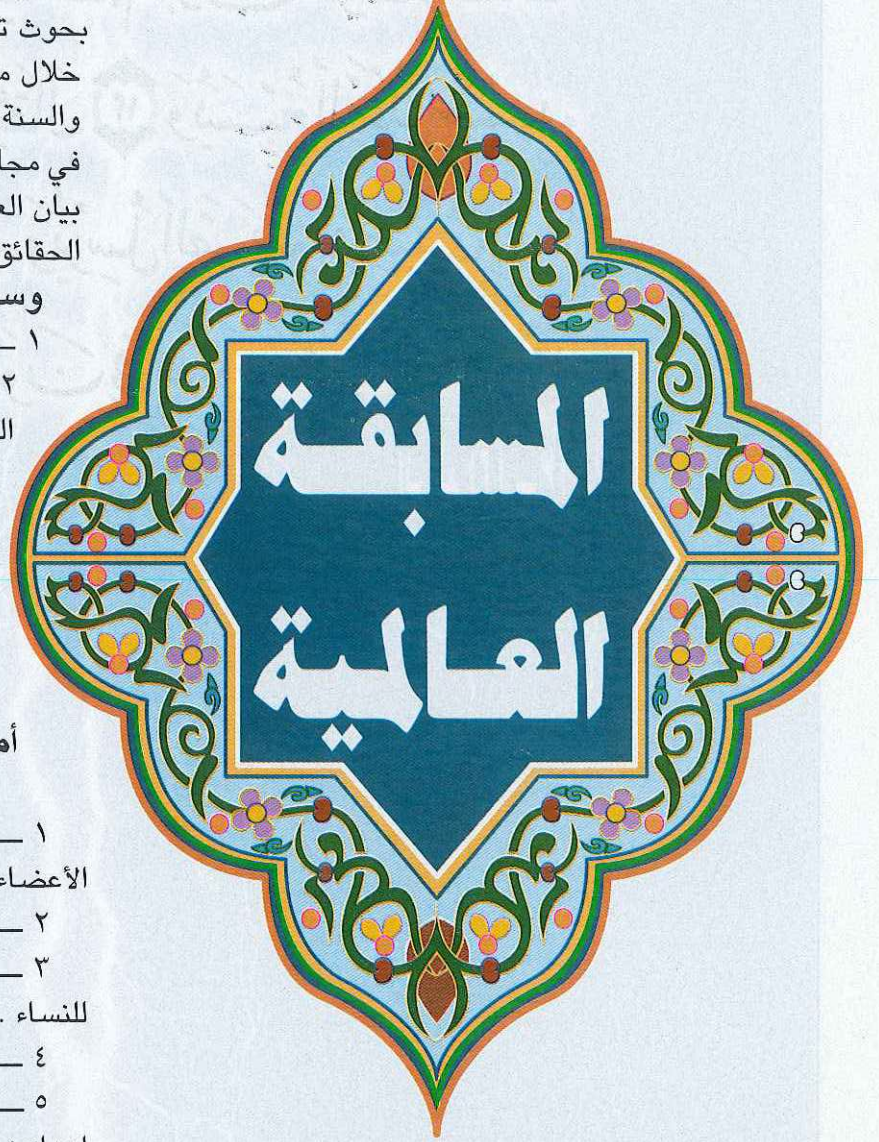 المسابقة
العالمية
بحوث
خلال
والسنة
في
بيان
الحقائق
١ ـ
٢
١ ـ
الأعضاء
٢ ـ
٣ ـ
للنساء .
٤ ـ
٥ ـ